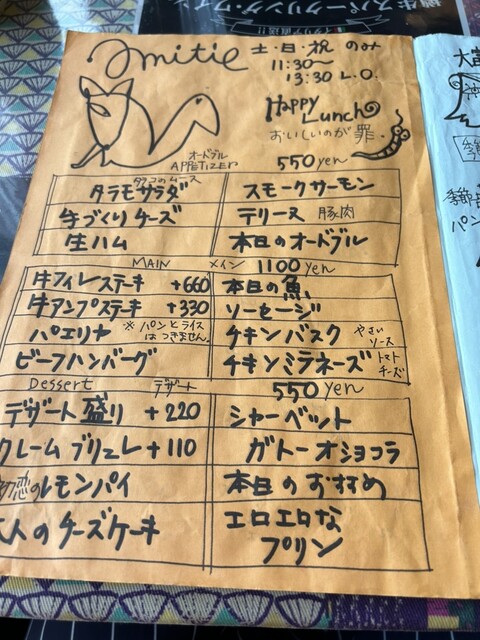 樽生スパークリングワイン
Amitie 土・日・祝 のみ
11:30〜
13:30 L.O.
Happy
Lunch
おいしいのが罪.
オードブル
APPETIZER 550yen
タラコのムース
タラモサラダ スモークサーモン
手づくりチーズ テリーヌ 豚肉
生ハム 本日のオードブル
MAIN メイン 1100yen
牛フィレステーキ +660 本日の魚
牛ランプステーキ +330 ソーセージ
パエリヤ ※パンとライスはつきません。 チキンバスク やさいソース
ビーフハンバーグ チキンミラネーズ トマトチーズ
Dessert デザート 550yen
デザート盛り +220 シャーベット
クレームブリュレ +110 ガトーオショコラ
初恋のレモンパイ 本日のおすすめ
大人のチーズケーキ エロエロな
プリン